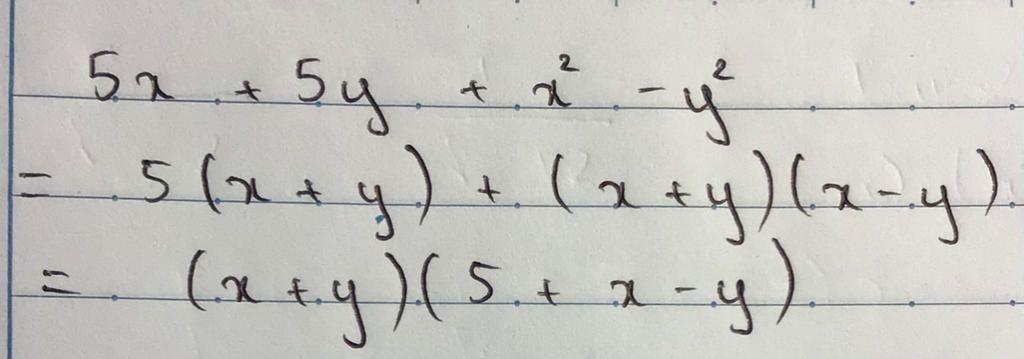 5x + 5y + x² - y²
= 5(x + y) + (x + y)(x - y)
= (x + y)(5 + x - y)